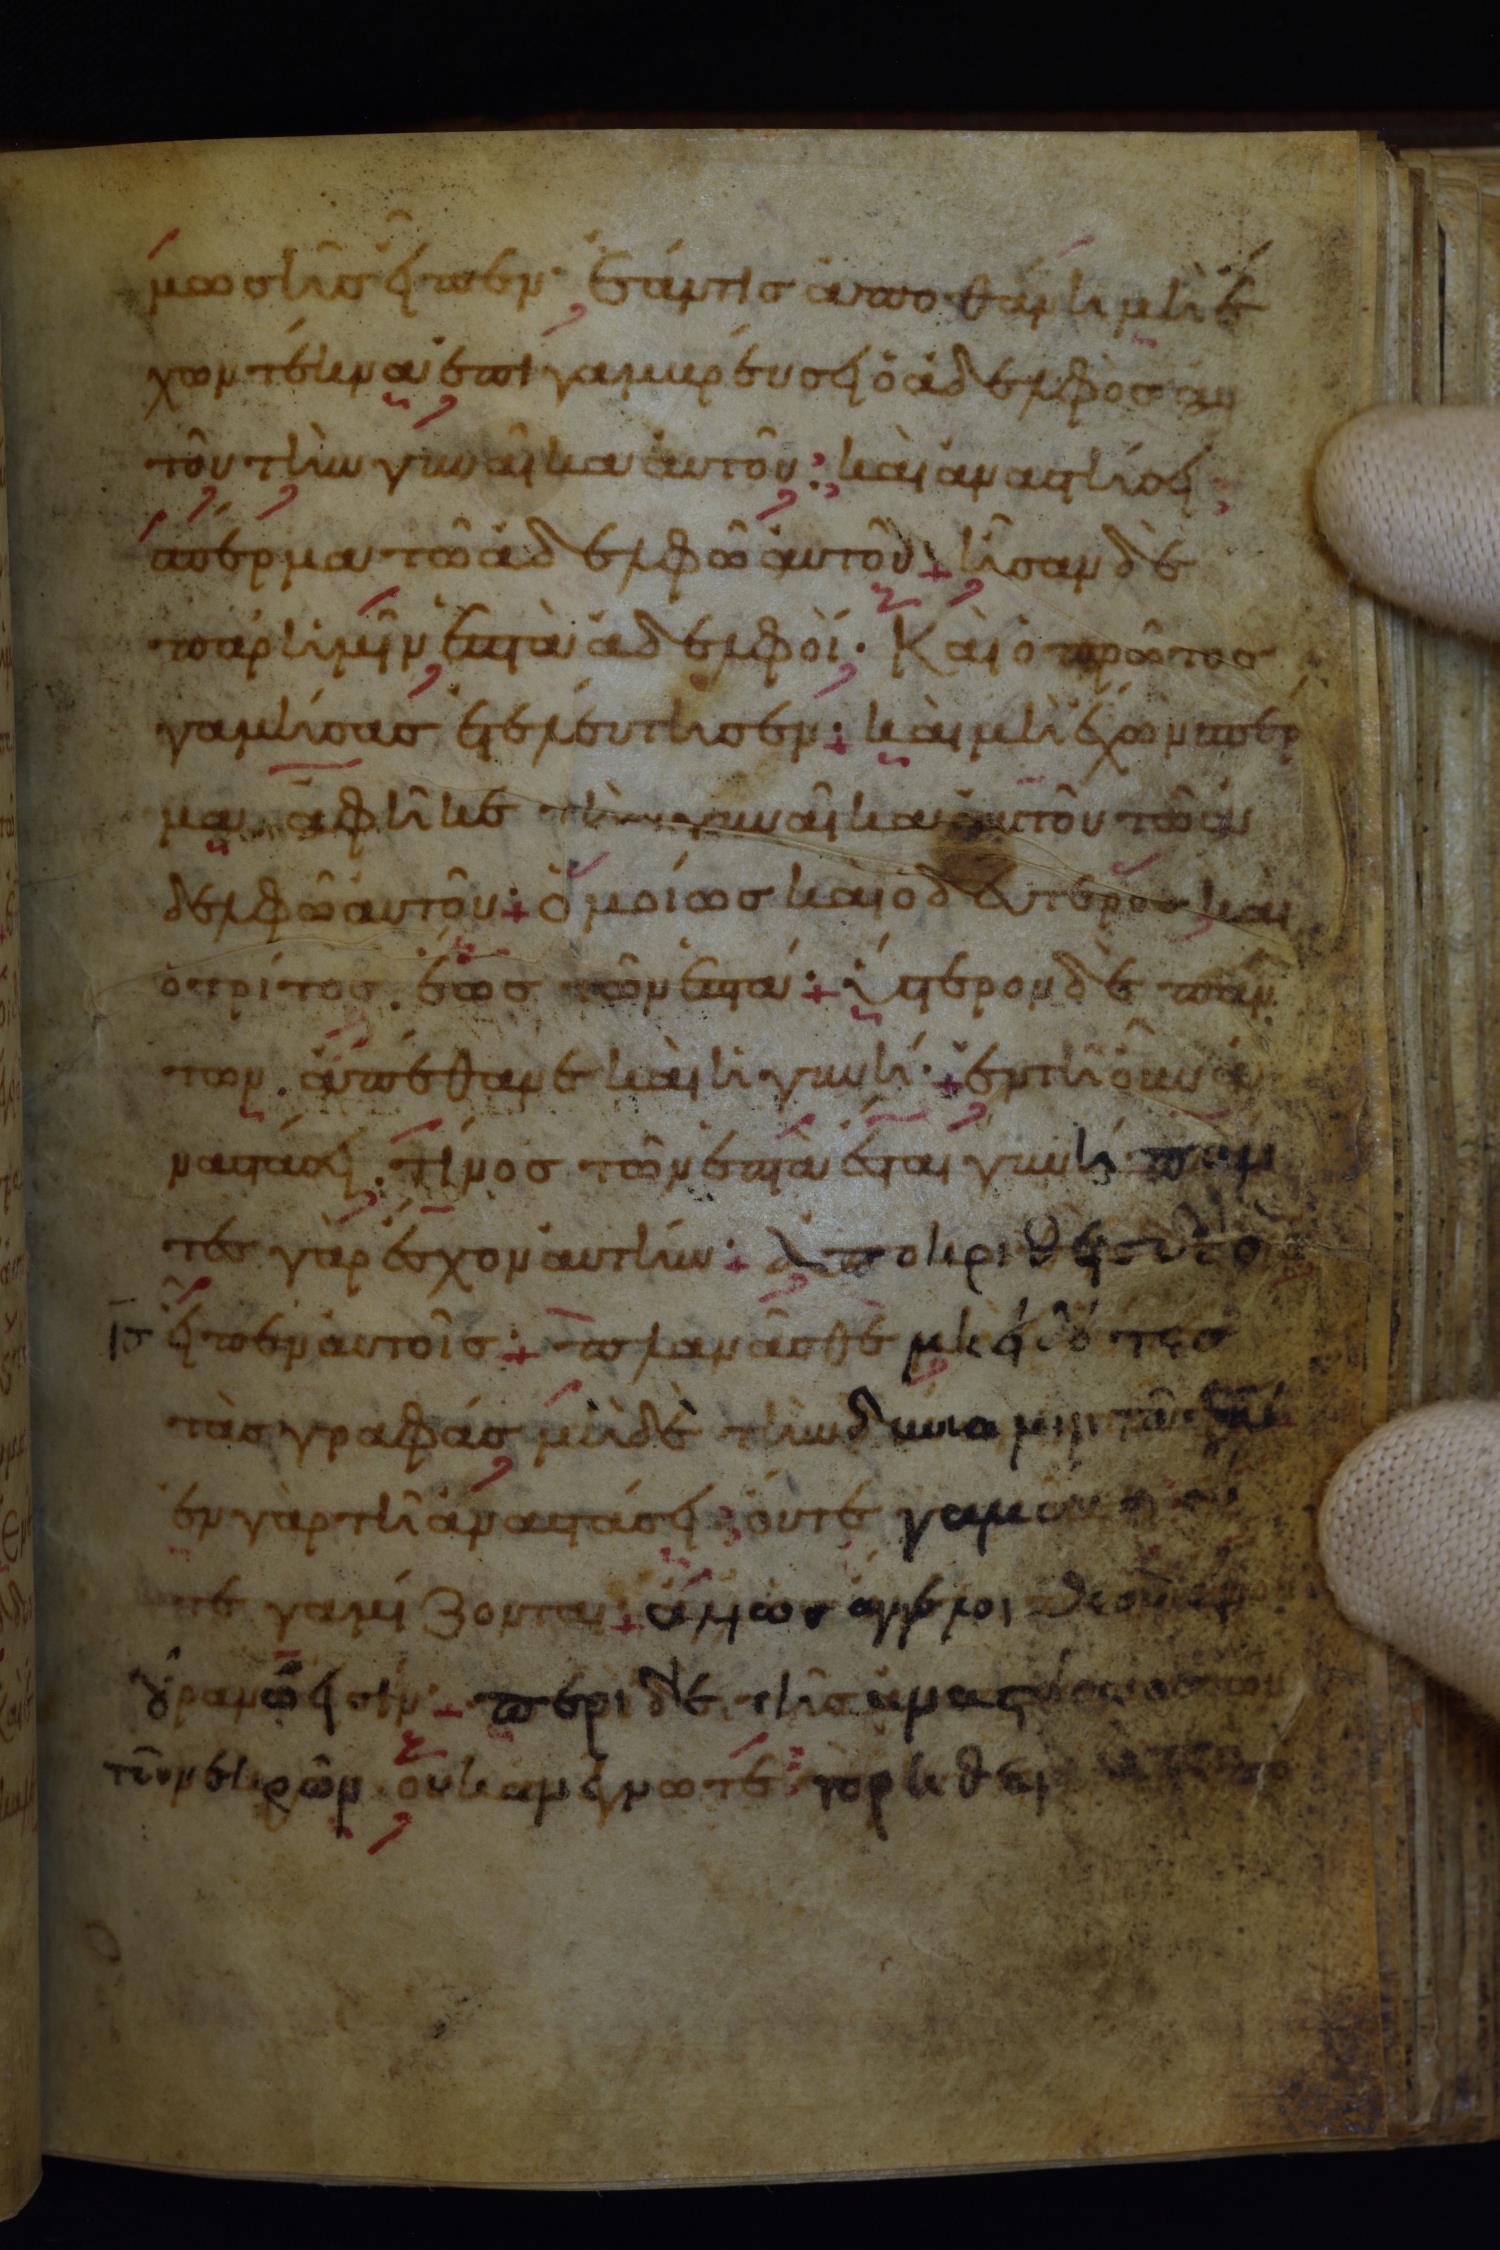 μωσῆς εἶπεν· ἐάν τις ἀποθάνη μὴ ἔ
χων τέκνα ἐπιγαμβρεύσει ὁ ἀδελφὸς αυ
τοῦ τὴν γυναῖκα αὐτοῦ: καὶ ἀναστήσει
σπέρμα τῶ ἀδελφῶ αὐτοῦ + ἦσαν δὲ
παρ ἡμῖν ἑπτὰ ἀδελφοί· Καὶ ὁ πρῶτος
γαμήσας ἐτελεύτησεν· + καὶ μὴ ἔχων σπέρ
μα ἀφῆκε τὴν γυναῖκα αὐτοῦ τῶ ἀ
δελφῶ αὐτοῦ· + ὁμοίως καὶ ὁ δεύτερος καὶ
ὁ τρίτος. ἕως τῶν ἑπτά· + ὕστερον δὲ πάν
των. ἀπέθανε καὶ ἡ γυνή· + ἐν τῆ οὖν ἀ
ναστάσει. τίνος τῶν ἑπτὰ ἔσται γυνή παν
τες γὰρ ἔσχον αυτήν· + Ἀποκριθεὶς ὁ
ις εἶπεν αὐτοῖς· + πλανᾶσθε μὴ εἰδότες
τὰς γραφάς μὴδὲ τὴν δύναμιν τοῦ θυ
ἐν γὰρ τῆ ἀναστάσει οὔτε γαμοῦσιν οὐ
τε γαμίζονται + ἀλλ ὡς ἄγγελοι θεοῦ ἐν
οὐρανῶ εἰσίν· + περὶ δὲ τῆς ἀναστάσεως τῶν
τῶν νεκρῶν οὐκ ἀνέγνωτε το ρηθεν